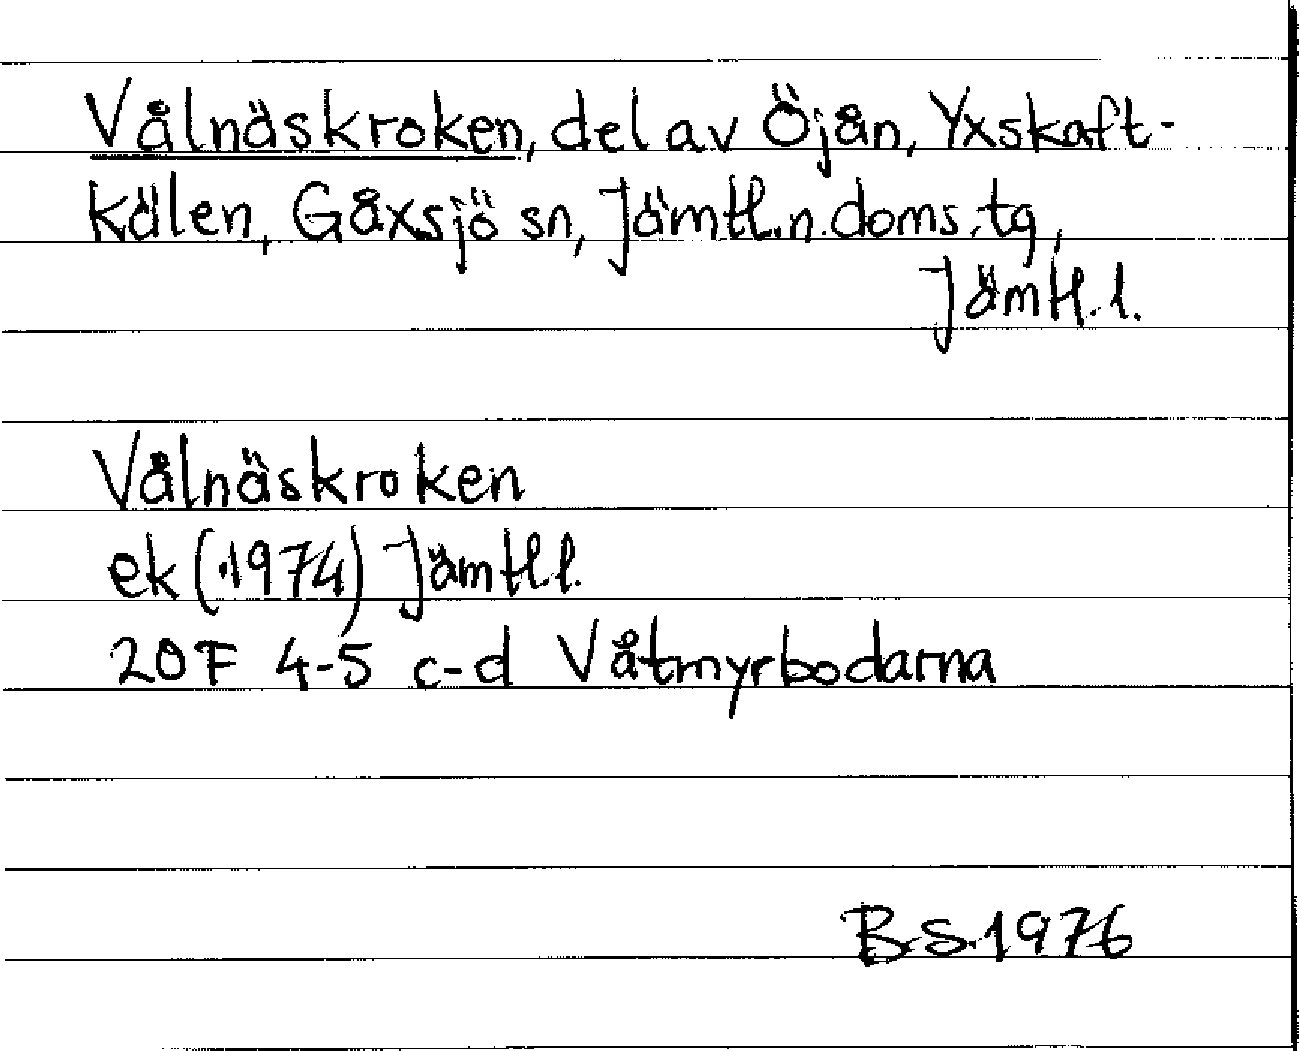 Vålnäskroken, del av Öjån, Yxskaft-
kälen, Gåxsjö sn, Jämtl.n.doms.tg,
Jämtl.l.
Vålnäskroken
ek (1974) Jämtl.l.
20F 4-5 c-d Våtmyrbodarna
B.S.1976